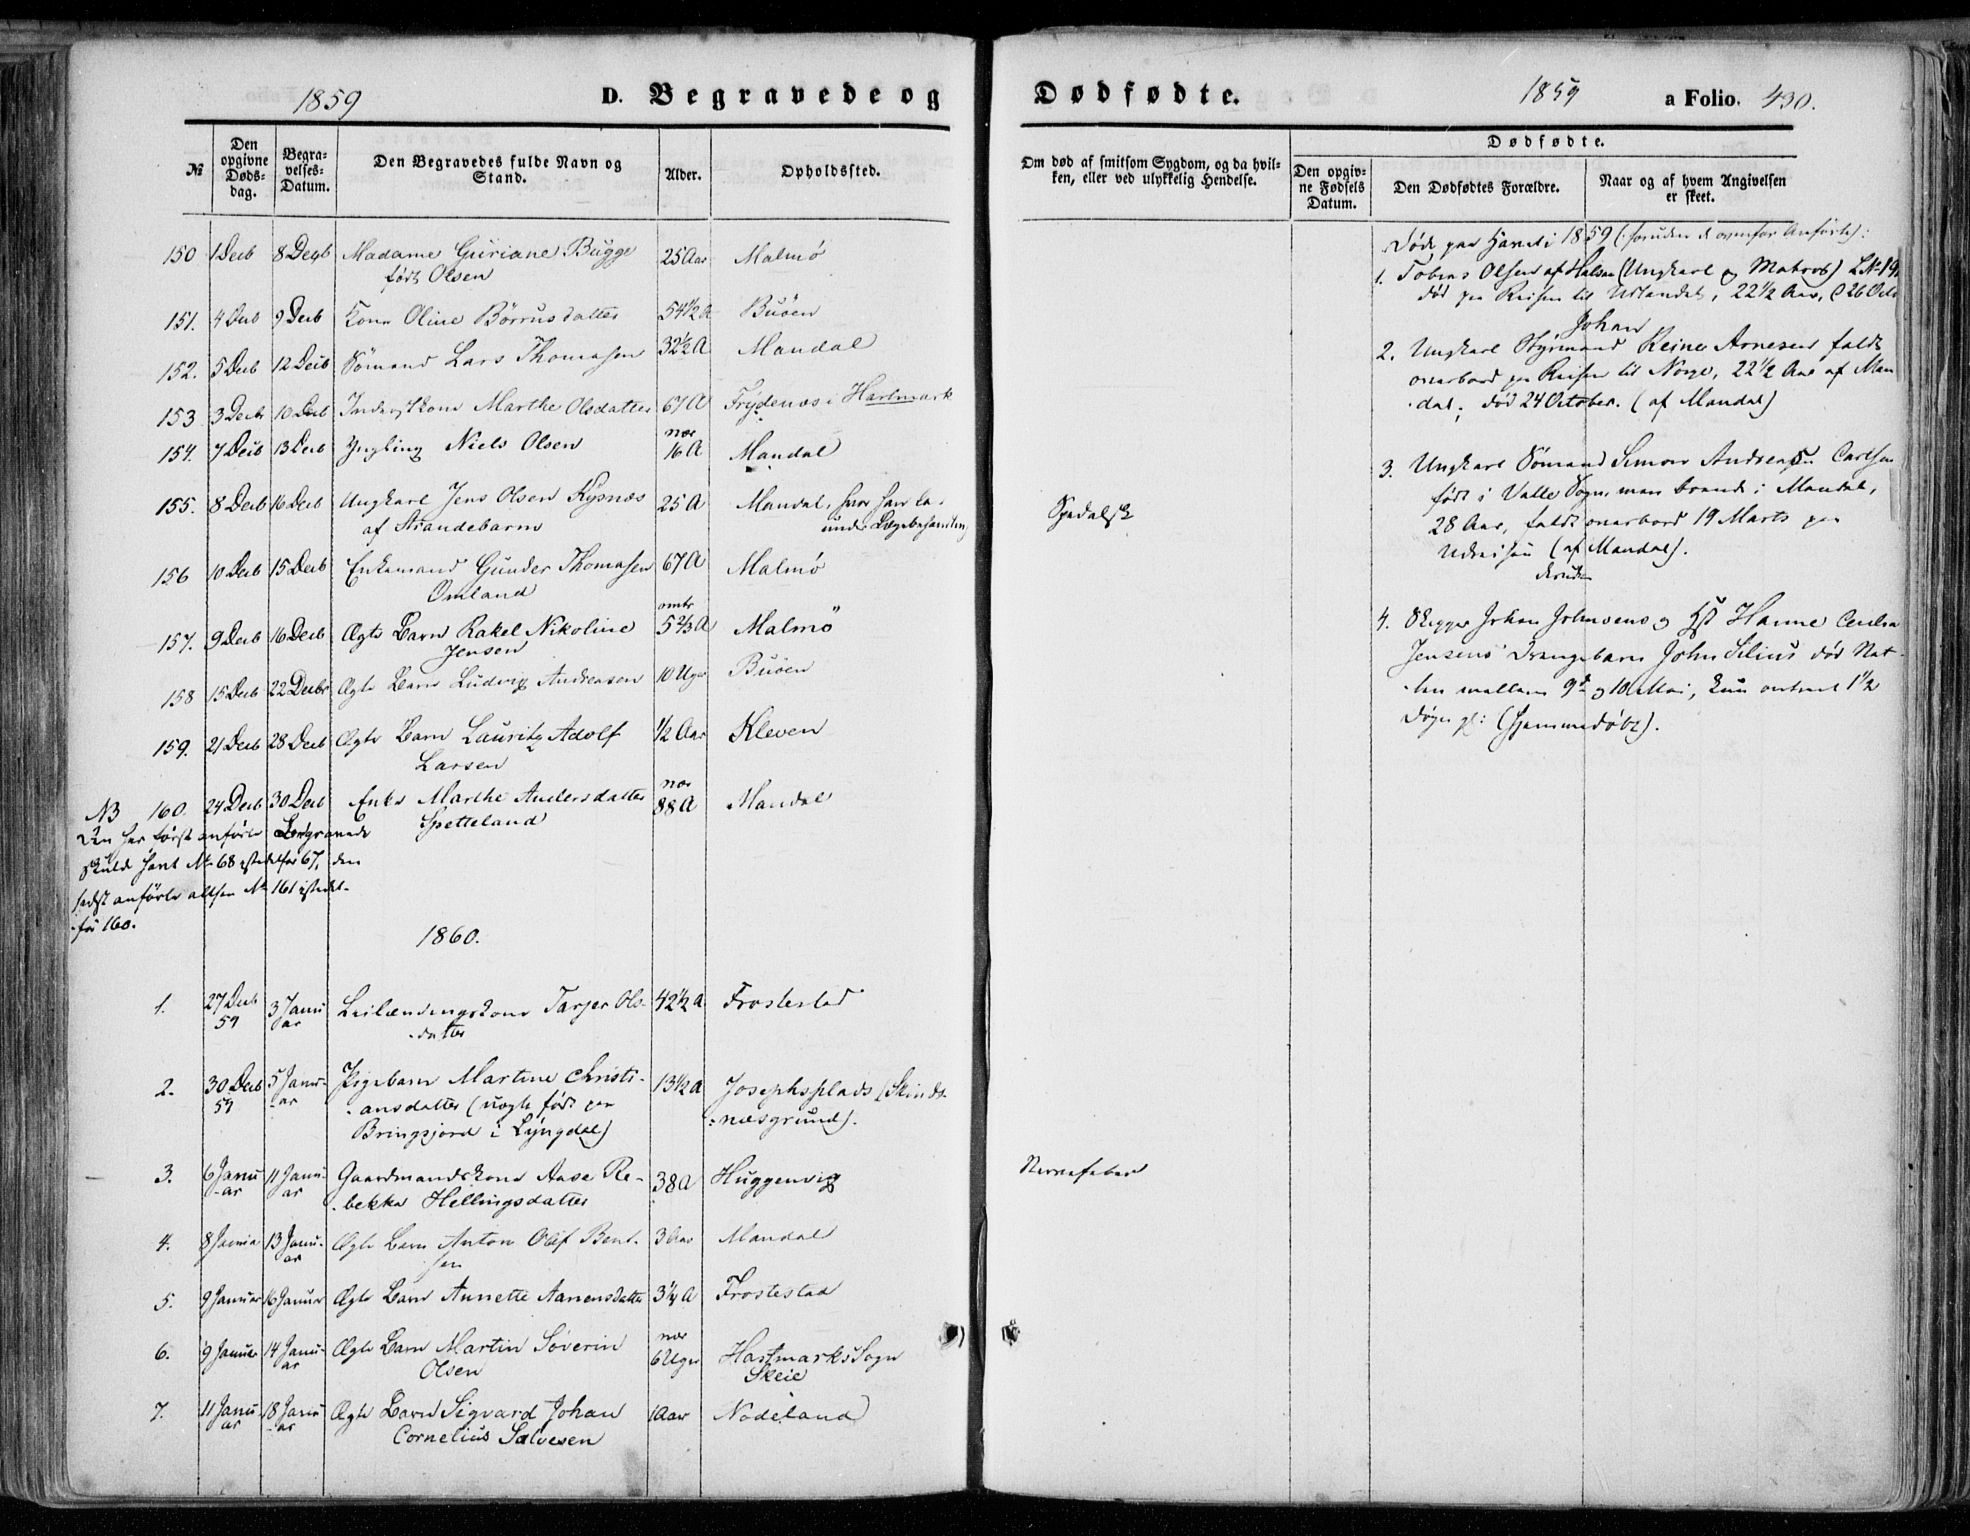 1859
D. Begravede og
№
Den opgivne Dødsdag.
Begravelses-Datum.
Den Begravedes fulde Navn og Stand.
Alder.
Opholdssted.
150 1 Decb 8 Decb Madame Guriane Bugge 25 Aar Malmø
født Olsen
151. 4 Decb 9 Decb Kone Oline Børrusdatter 54½ A Buøen
152. 5 Decb 12 Decb Sømand Lars Thomasen 32½ A Mandal
153 3 Decbr 10 Decb Inderstkone Marthe Olsdatter 67 A Frydenæs i Hartmark
154. 7 Decb 13 Decb Yngling Niels Olsen nær 16 A Mandal
155. 8 Decb 16 Decb Ungkarl Jens Olsen Kysnæs 25 A Mandal, hvor han la
af Strandebarm under Lægebehandling
156 10 Decb 15 Decb Enkemand Gunder Thomasen 67 A Malmø
Omland
157. 9 Decb 16 Decb Ægte Barn Rakel Nikoline omtr 5⅔ A Malmö
Jensen
158 15 Decb 22 Decbr Ægte Barn Ludvig Andreasen 10 Uger Buöen
159. 21 Decb 28 Decb Ægte Barn Lauritz Adolf ½ Aar Kleven
Larsen
NB 160. 24 Decb 30 Decb Enke Marthe Andersdatter nær 88 A Mandal
Spetteland
Den her først anførte Begravede
skulde havt No 68 istedetfor 67, den
sidst anførte altsaa No 161 istedet-
for 160.
1860.
1. 27 Decb 59 3 Januar Leilændingskone Tarjer Ols- 42½ A Frostestad
datter
2. 30 Decb 59 5 Januar Pigebarn Martine Christi- 13½ A Josephsplads (Skinds-
ansdatter (uægte født paa næsgrund).
Bringsjord i Lyngdal)
3. 6 Januar 11 Januar Gaardmandskone Aase Re- 38 A Huggenvig
bekka Hellingsdatter
4. 8 Janua 13 Januar Ægte Barn Anton Olif Bent- 3 Aar Mandal
sen
5. 9 Januar 16 Januar Ægte Barn Annette Aanensdatter 3¼ A Frostestad
6. 9 Januar 14 Januar Ægte Barn Martin Søverin nær 6 Uger Hartmarks Sogn
Olsen Skeie
7. 11 Januar 18 Januar Ægte Barn Sigvard Johan 1 Aar Nodeland
Cornelius Salvesen
Dødfødte.
1859
a Folio. 430.
Om død af smitsom Sygdom, og da hvilken, eller ved ulykkelig Hendelse.
Dødfødte.
Den opgivne Fødsels Datum.
Den Dødfødtes Forældre.
Naar og af hvem Angivelsen er skeet.
Spedalsk
Nervefeber
Døde paa Havet i 1859 (foruden de ovenfor Anførte):
1. Tobias Olsen af Halsaa (Ungkarl og Matros)
død paa Reisen til Udlandet, 22½ Aar, 26 Octo
Johan
2. Ungkarl Styrmand Reiner Arnesen faldt
overbord paa Reisen til Norge, 22½ Aar af Man
dal, død 24 October. (af Mandal)
3. Ungkarl Sømand Simon Andreas Carlsen
født i Valle Sogn, men boende i Mandal,
28 Aar, faldt overbord 19 Marts paa
Udreisen (af Mandal).
4. Skipper Johan Johnsens og Hst Hanne Cecilia
Jensens Drengebarn John Silius død Nat-
ten mellem 9de og 10 Mai, kun omtrent 1½
Døgn gl: (hjemmedøbt).